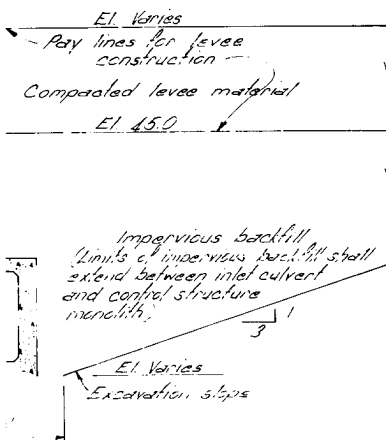 El. Varies
Pay lines for levee
construction
Compacted levee material
El. 45.0
Impervious backfill
(Limits of impervious backfill shall
extend between inlet culvert
and control structure
monolith)
1
3
El. Varies
Excavation slope